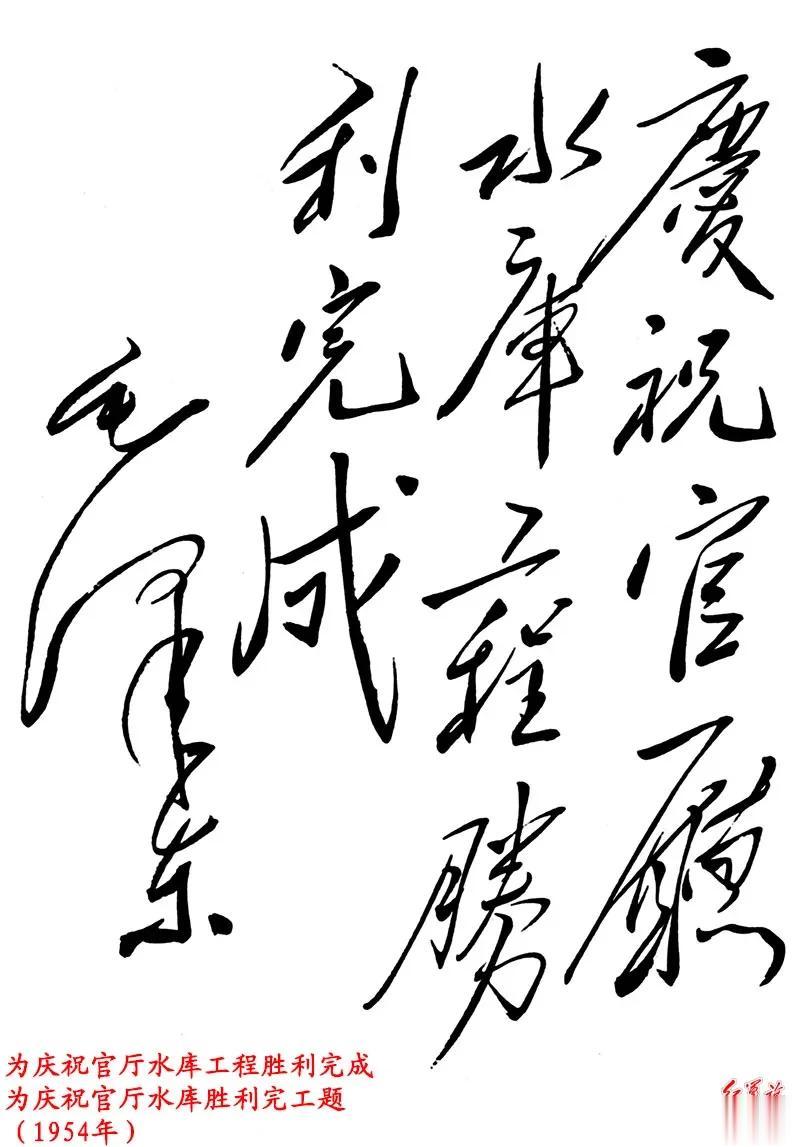 慶祝官廳
水庫工程勝
利完成
毛澤东
为庆祝官厅水库工程胜利完成
为庆祝官厅水库胜利完工题
（1954年）